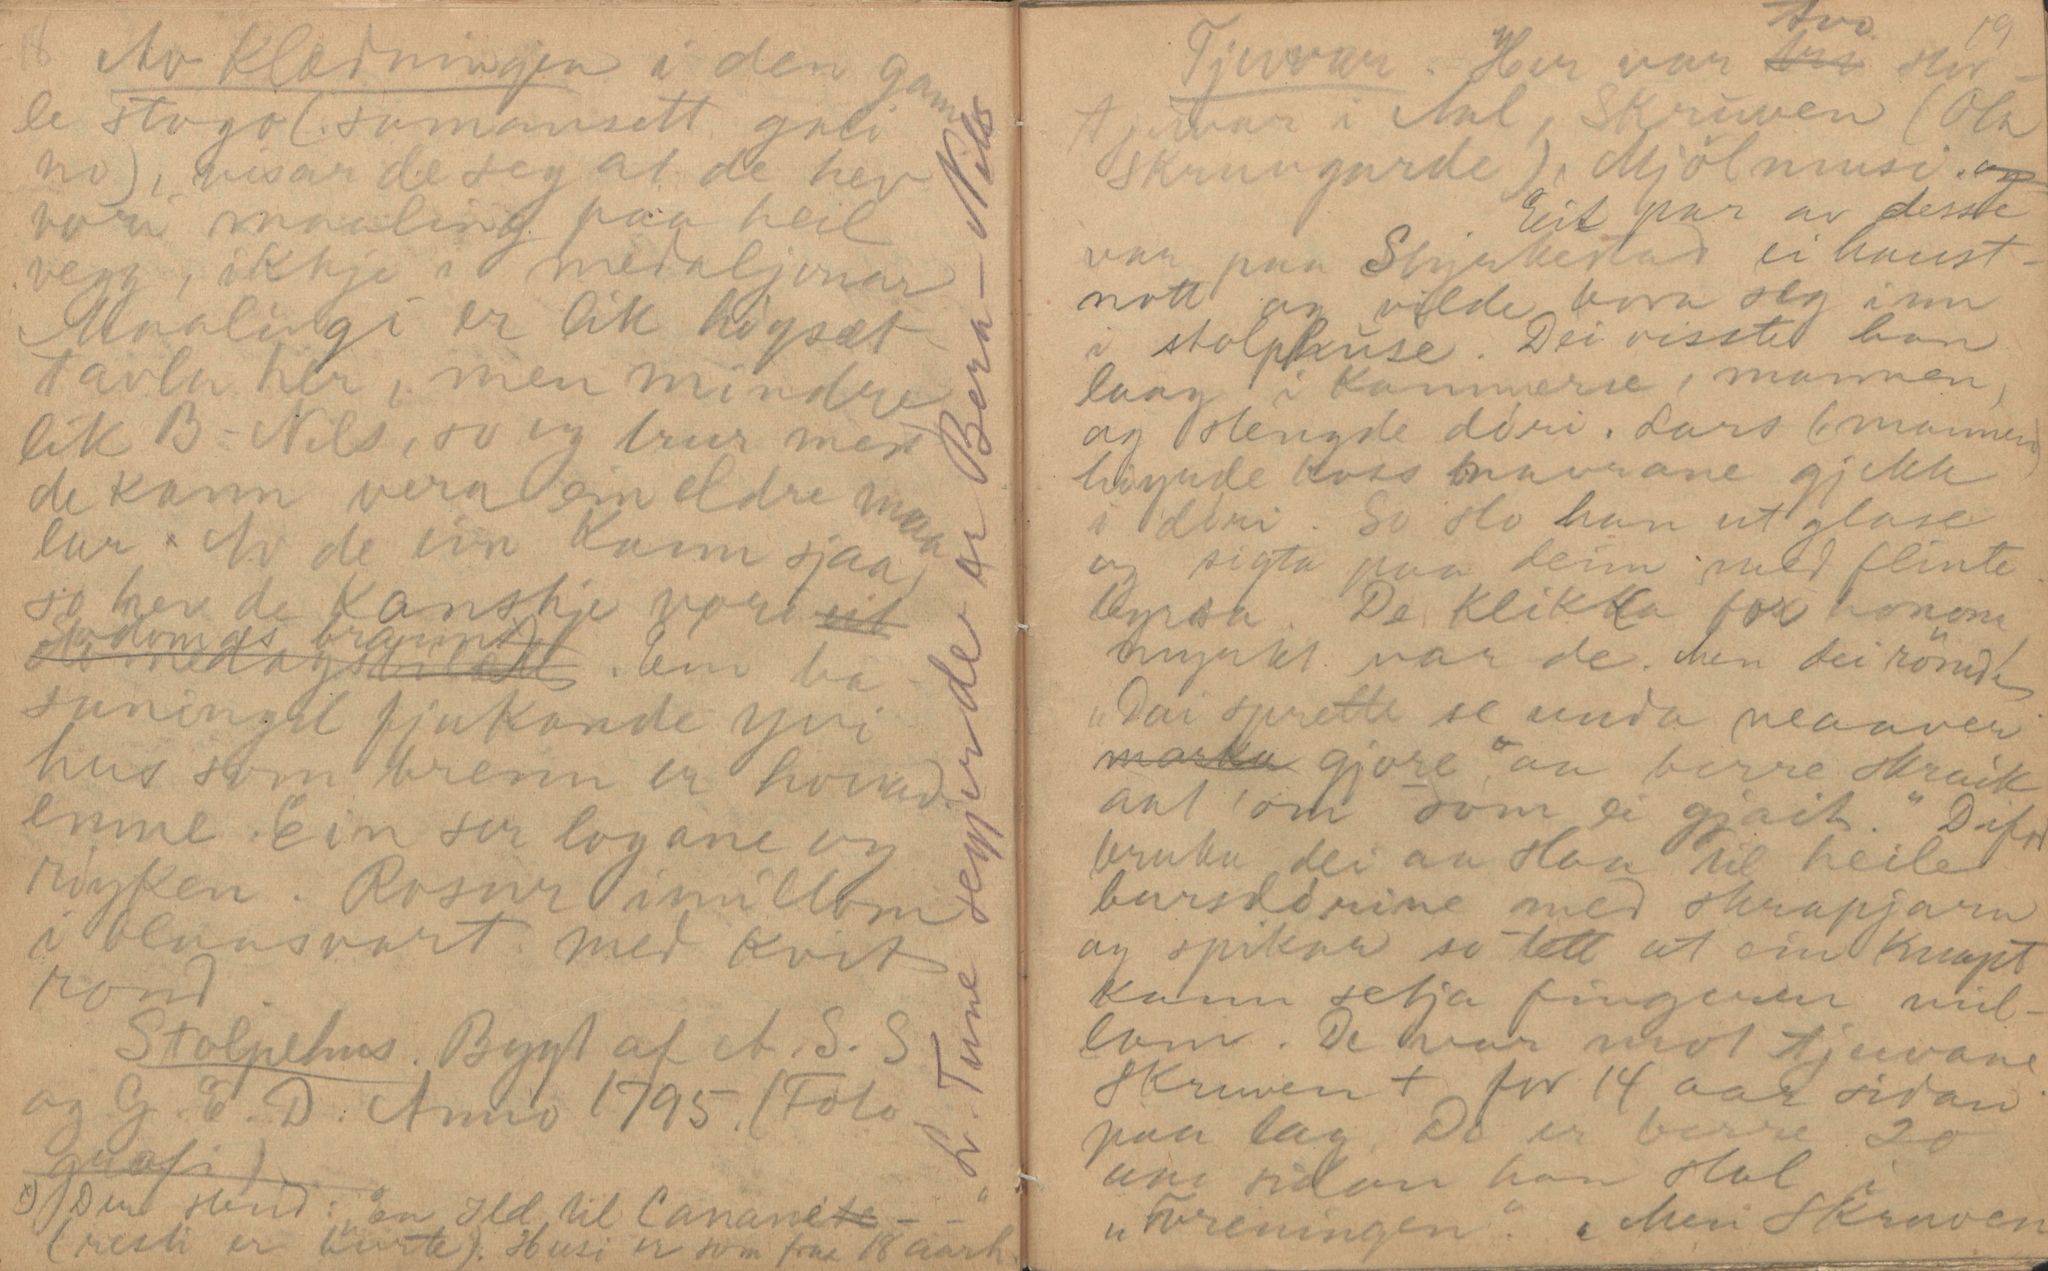 18 Av klædningjen i den gam-
le stogo (. somansett goli
no), visar de seg at de hev
vori maaling paa heil
vegg, ikkje i medaljonar
Maalingi er lik högsæt-
tavla her, men mindre
lik B-Nils, so eg trur men
de kann vera ein eldre maa
lar. Av de ein kann sjaa x)
so hev de kanskje vori eit
Sodomas brann
domedagsbilæte. Ein ba-
suningel fjukande yvi
hus som brenn er hovud-
emne. Ein ser logane og
röyken. Rosur imillom
i blaasvart med kvit
rond
Stolpehus. Bygt af A. S. S
og G. E. D. Anno 1795. (Foto
grafi)
x) Der stend: "En Ild til Cananete - -
(resti er burte). Husi er som fraa 18 aarh.
"L. Tune segjer de er Bera-Nils
19
Tjuvar. Her var tvo
tri stor-
tjuvar i Aal, Skruven (Ola
Skruvgarde), Mjölmusi. og
Eit par av desse
var paa Styrkestad ei haust-
nott og vilde bora seg inn
i stolphuse. Dei visste han
laag i kammerse, mannen,
og stengde döri. Lars (mannen)
höyrde koss navrane gjekk
i döri. So slo han ut glase
og sigta paa deim med flinte-
byrsa. De klikka for honom
myrkt var de. Men dei rönde
"Dai sprette se unda neaaver
marka gjore "aa berre skraik
aat 'om som ei gjait." Difor
bruka dei aa slaa til heile
bursdörine med skrapjarn
og spikar so tett at ein knapt
kann setja fingeren mil-
lom. De var mot tjuvane
Skruven + for 14 aar sidan
paa lag. De er berre 20
aar sidan han stal i
"Foreningen". "Men Skruven